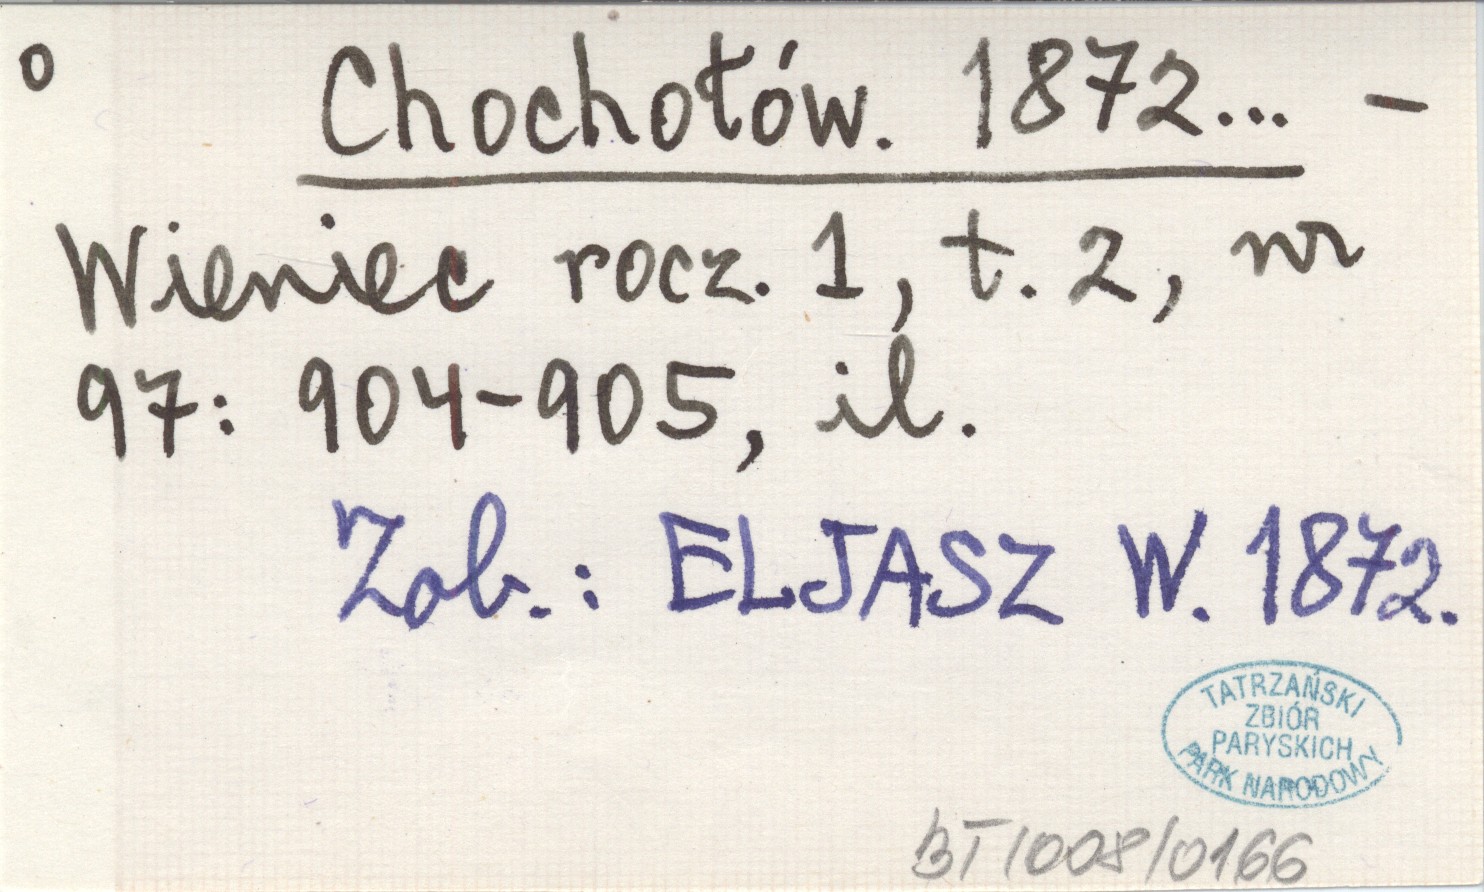 o Chochołów. 1872... -
Wieniec rocz. 1, t. 2, nr
97: 904-905, il.
Zob.: ELJASZ W. 1872.
TATRZAŃSKI
ZBIÓR
PARYSKICH
PARK NARODOWY
BT/008/0166